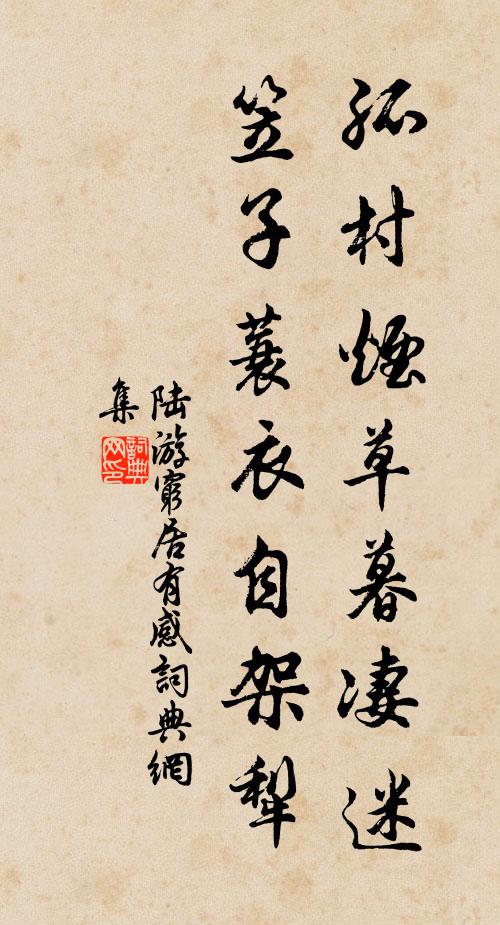 孤村煙草暮凄迷
笠子蓑衣自架犁
陆游窮居有感詞典網
集
詞典
网印